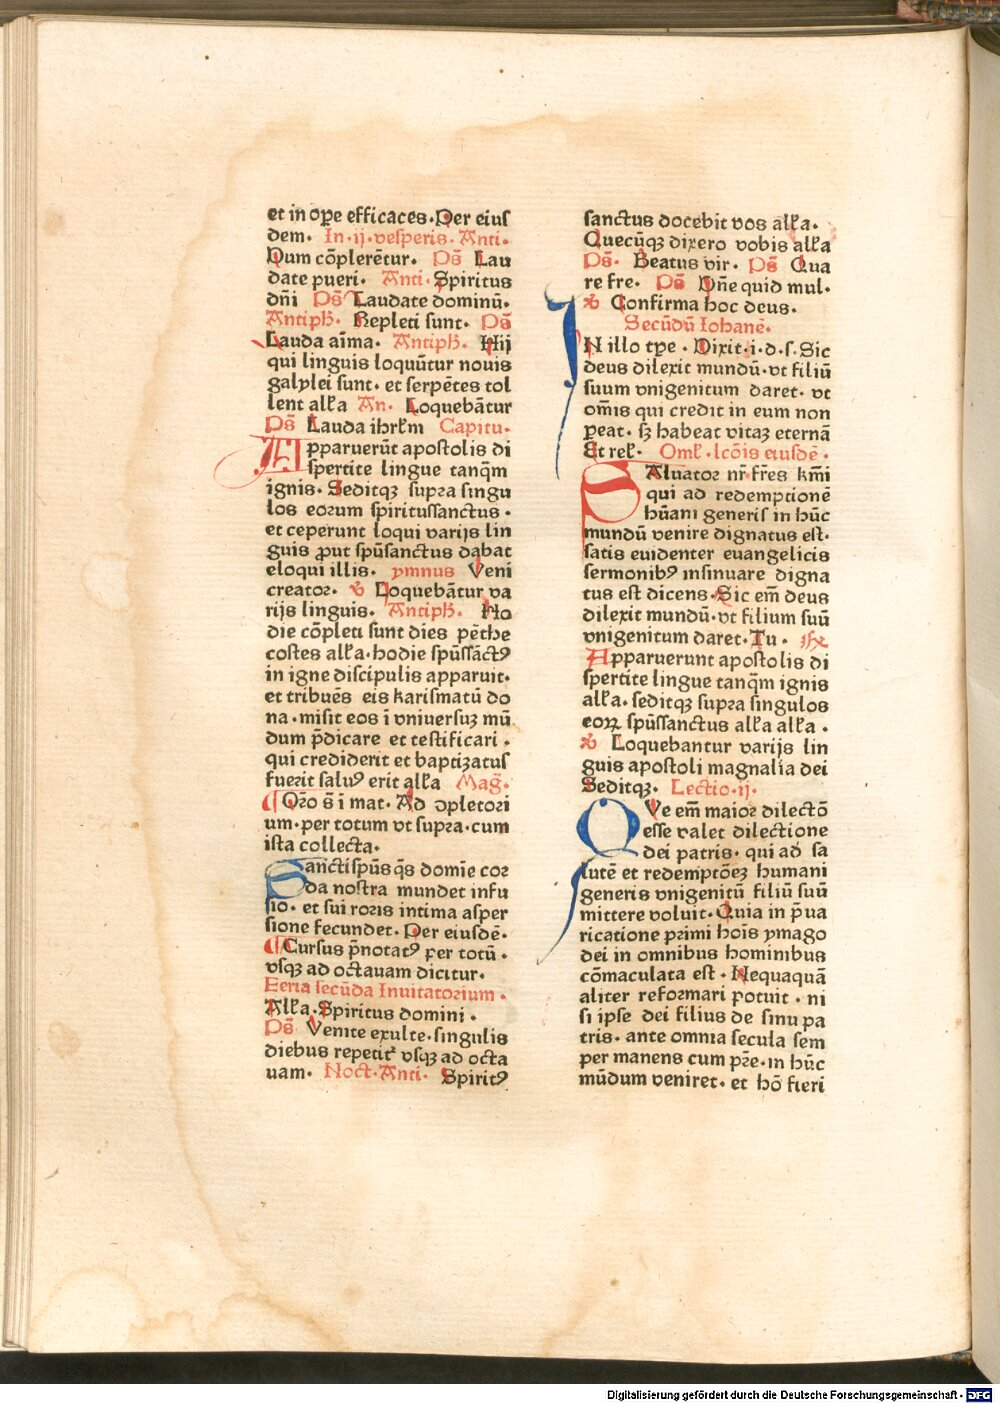 et in ope efficaces. Per eiuſ
dem. In .ij. veſperis. Anti.
Dum cōplerētur. Ps̄ Lau
date pueri. Anti. Spiritus
dn̄i Ps̄ Laudate dominū.
Antiph. Repleti ſunt. Ps̄
Lauda aīma. Antiph. Hij
qui linguis loquūtur nouis
galylei ſunt. et ſerpētes tol
lent alĺa An. Loquebātur
Ps̄ Lauda ihrl̄m Capitu.
Apparuerūt apoſtolis di
ſpertite lingue tanqm̄
ignis. Seditqꝫ ſupra ſingu
los eorum ſpirituſſanctus.
et ceperunt loqui varijs lin
guis ꝓut ſpūſanctus dabat
eloqui illis. ymnus Veni
creator. ꝟ Loquebātur va
rijs linguis. Antiph. Ho
die cōpleti ſunt dies pēthe
coſtes alĺa. hodie ſpūſſāctꝰ
in igne diſcipulis apparuit.
et tribuēs eis kariſmatū do
na. miſit eos ī vniuerſuꝫ mū
dum p̄dicare et teſtificari.
qui crediderit et baptizatus
fuerit ſaluꝰ erit alĺa Maḡ.
Orō s̄ ī mat. Ad ꝯpletori
um. per totum vt ſupra. cum
iſta collecta.
Sancti ſpūs qs̄ domīe cor
da noſtra mundet infu
ſio. et ſui roris intima aſper
ſione fecundet. Per eiuſdē.
Curſus p̄notatꝰ per totū.
vſqꝫ ad octauam dicitur.
Feria ſecūda Inuitatorium.
Alĺa. Spiritus domini.
Ps̄ Venite exulte. ſingulis
diebus repetit᷑ vſqꝫ ad octa
uam. Noct. Anti. Spiritꝰ
ſanctus docebit vos alĺa.
Quecūqꝫ dixero vobis alĺa
Ps̄. Beatus vir. Ps̄ Qua
re fre. Ps̄ Dn̄e quid mul.
ꝟ Confirma hoc deus.
Secūdū Iohanē.
IN illo tp̄e. Dixit .i. d. ſ. Sic
deus dilexit mundū. vt filiū
ſuum vnigenitum daret. vt
om̄is qui credit in eum non
ꝑeat. ſꝫ habeat vitaꝫ eternā
Et reĺ. Omĺ. lcōis eiuſdē.
Saluator nr̄ fr̄es km̄i
qui ad redemptionē
hūani generiſ in hūc
mundū venire dignatus eſt.
ſatis euidenter euangelicis
ſermonibꝰ inſinuare digna
tus eſt dicens. Sic em̄ deus
dilexit mundū. vt filium ſuū
vnigenitum daret. Tu.
Apparuerunt apoſtolis di
ſpertite lingue tanqm̄ ignis
alĺa. ſeditqꝫ ſupra ſingulos
eoꝝ ſpūſſanctus alĺa alĺa.
ꝟ Loquebantur varijs lin
guis apoſtoli magnalia dei
Seditqꝫ. Lectio .ij.
QVe em̄ maior dilectō
eſſe valet dilectione
dei patris. qui ad ſa
lutē et redemptōeꝫ humani
generis vnigenitū filiū ſuū
mittere voluit. Quia in p̄ua
ricatione primi hoīs ymago
dei in omnibus hominibus
cōmaculata eſt. Nequaquā
aliter reformari potuit. ni
ſi ipſe dei filius de ſinu pa
tris. ante omnia ſecula ſem
per manens cum pr̄e. in hūc
mūdum veniret. et hō fieri
Digitalisierung gefördert durch die Deutsche Forschungsgemeinschaft - DFG